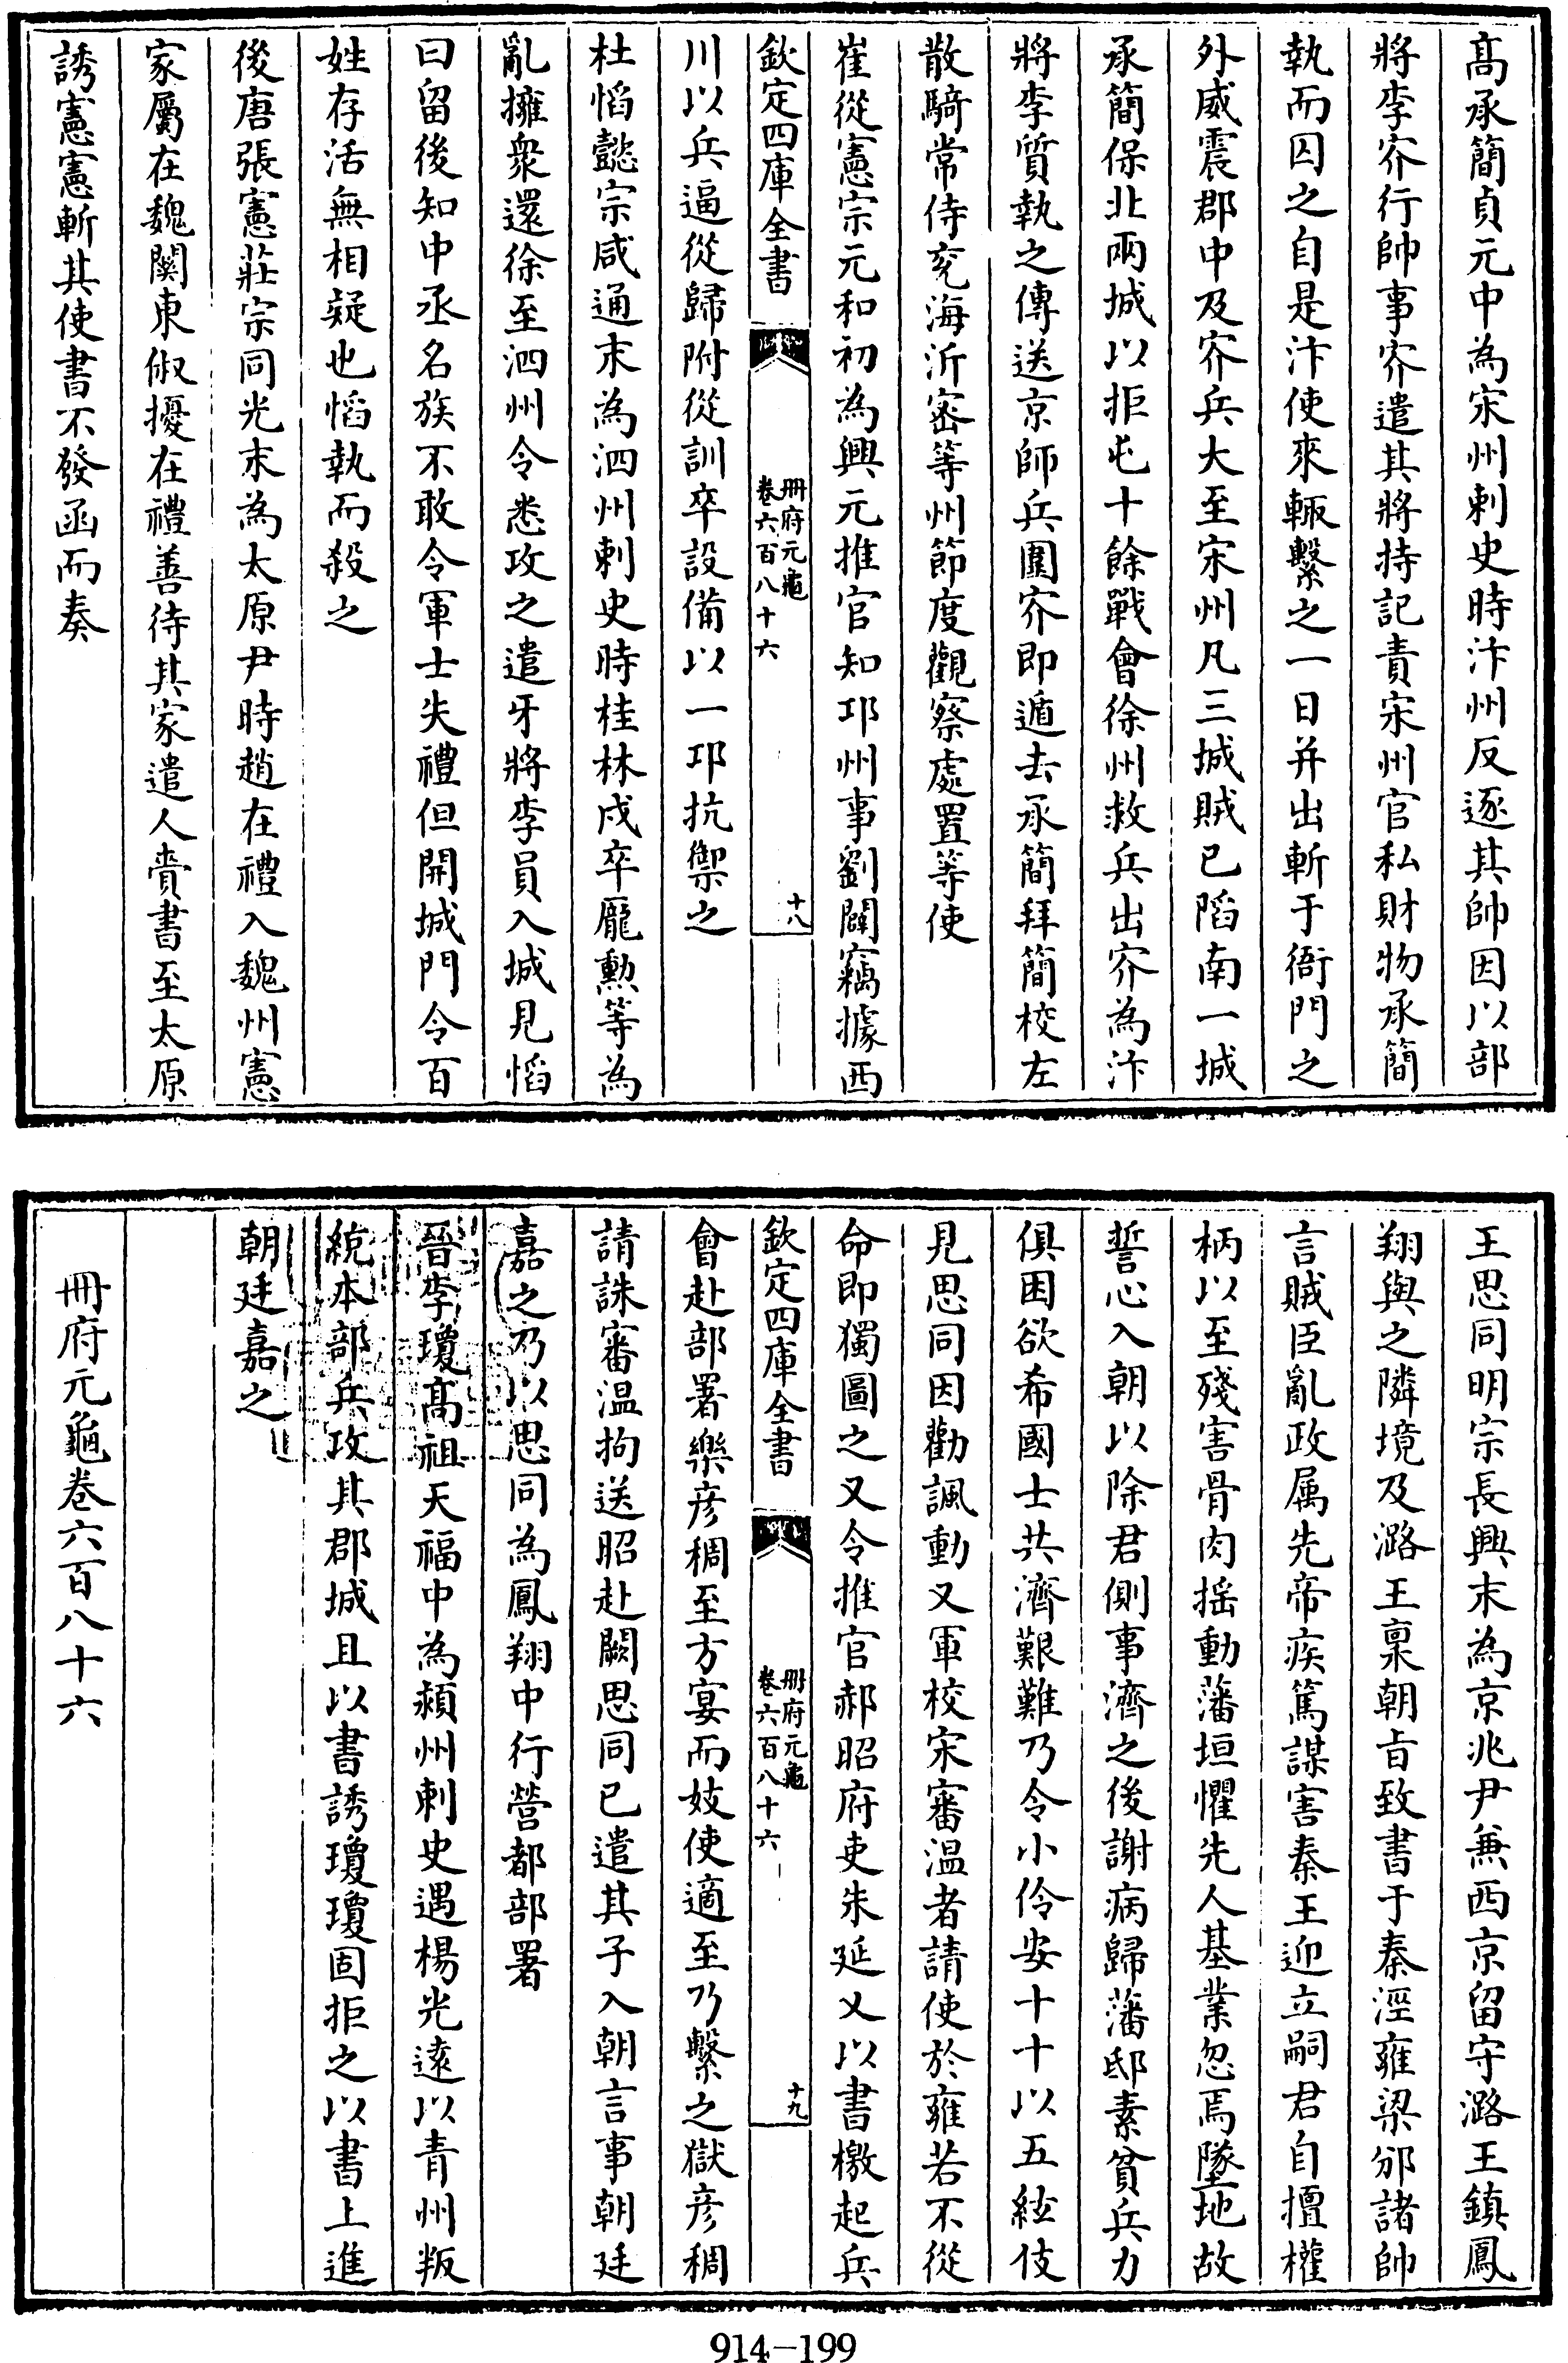 髙承簡貞元中為宋州刺史時汴州反逐其帥因以部
將李㝏行帥事㝏遣其將持記責宋州官私財物承簡
執而囚之自是汴使來輙繫之一日并出斬于衙門之
外威震郡中及㝏兵大至宋州凡三城賊已陷南一城
承簡保北兩城以拒屯十餘戰㑹徐州救兵出㝏為汴
將李質執之傳送京師兵圍㝏即遁去承簡拜簡校左
散騎常侍兖海沂宻等州節度觀察處置等使
崔從憲宗元和初為興元推官知邛州事劉闢竊據西
欽定四庫全書
冊府元龜
卷六百八十六
十八
川以兵逼從歸附從訓卒設備以一邛抗禦之
杜慆懿宗咸通末為泗州刺史時桂林戍卒龎勲等為
亂擁衆還徐至泗州令悉攻之遣牙將李員入城見慆
曰留後知中丞名族不敢令軍士失禮但開城門令百
姓存活無相疑也慆執而殺之
後唐張憲莊宗同光末為太原尹時趙在禮入魏州憲
家屬在魏闗東俶擾在禮善待其家遣人賫書至太原
誘憲憲斬其使書不發函而奏
王思同明宗長興末為京兆尹兼西京留守潞王鎮鳳
翔與之隣境及潞王稟朝㫖致書于秦涇雍梁邠諸帥
言賊臣亂政属先帝疾篤謀害秦王迎立嗣君自擅權
柄以至殘害骨肉揺動藩垣懼先人基業忽焉墜地故
誓心入朝以除君側事濟之後謝病歸藩邸素貧兵力
俱困欲希國士共濟艱難乃令小伶安十十以五絃伎
見思同因勸諷動又軍校宋審温者請使於雍若不從
命即獨圖之又令推官郝昭府吏朱延乂以書檄起兵
欽定四庫全書
冊府元龜
卷六百八十六
十九
會赴部署樂彦稠至方宴而妓使適至乃繫之獄彦稠
請誅審温拘送昭赴闕思同已遣其子入朝言事朝廷
嘉之乃以思同為鳳翔中行營都部署
晉李瓊髙祖天福中為潁州刺史遇楊光逺以青州叛
統本部兵攻其郡城且以書誘瓊瓊固拒之以書上進
朝廷嘉之
冊府元龜卷六百八十六
914-199